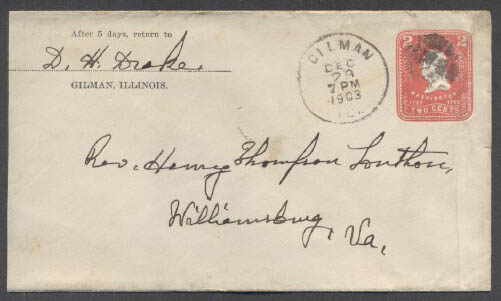 After 5 days, return to
D. H. Drake.
GILMAN, ILLINOIS.
GILMAN
DEC
29
PM
1903
ILL.
2 2
WASHINGTON
TWO CENTS
Rev. Henry Thompson Louthan,
Williamsburg,
Va,